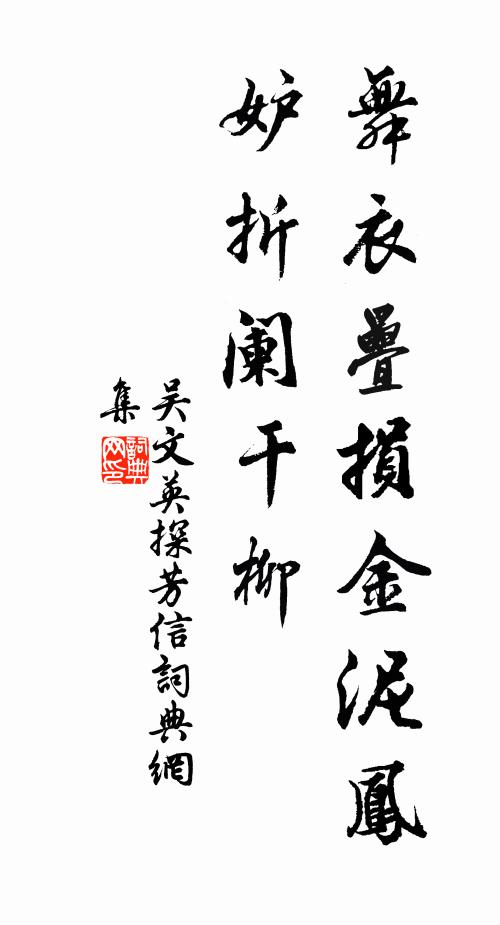 舞衣疊損金泥鳳
妒折阑干柳
吴文英探芳信詞典網
集
詞典网印